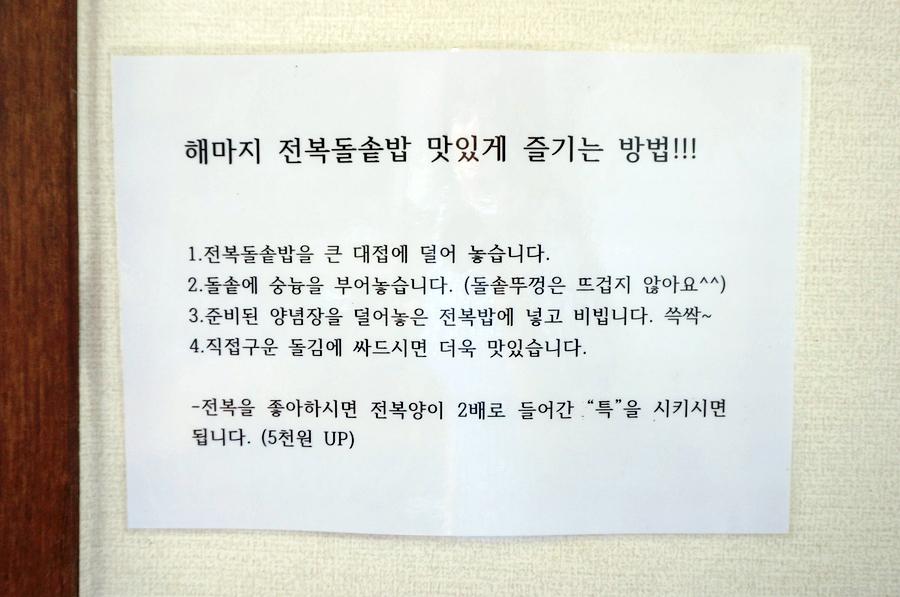 해마지 전복돌솥밥 맛있게 즐기는 방법!!!
1.전복돌솥밥을 큰 대접에 덜어 놓습니다.
2.돌솥에 숭늉을 부어놓습니다. (돌솥뚜껑은 뜨겁지 않아요^^)
3.준비된 양념장을 덜어놓은 전복밥에 넣고 비빕니다. 쓱싹~
4.직접구운 돌김에 싸드시면 더욱 맛있습니다.
-전복을 좋아하시면 전복양이 2배로 들어간 “특”을 시키시면
됩니다. (5천원 UP)